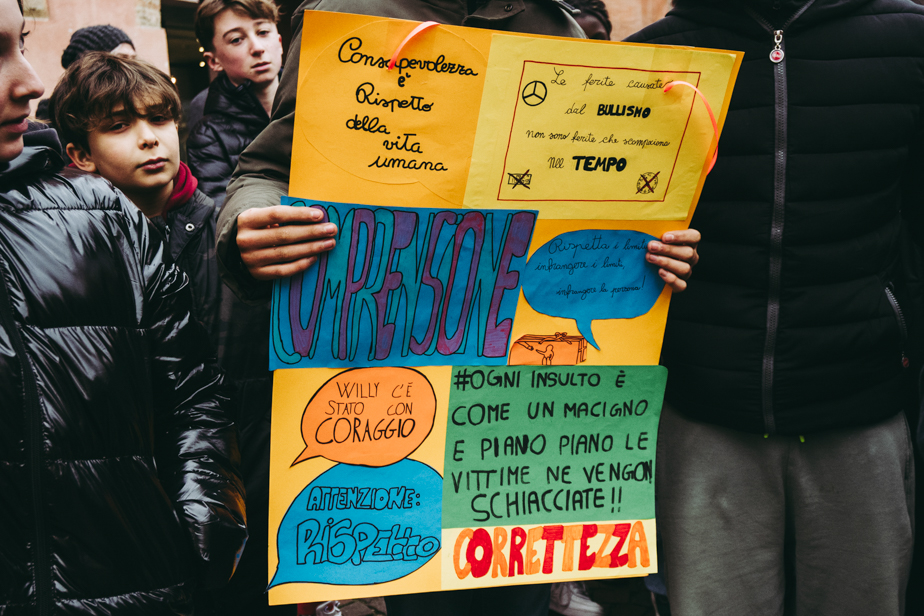 Consapevolezza
è
Rispetto
della
vita
umana
Le ferite causate
dal BULLISMO
non sono ferite che scompaiono
Nel TEMPO
COMPRENSIONE
Rispetta i limiti
infrangere i limiti,
infrangere la persona!
WILLY C'È
STATO CON
CORAGGIO
ATTENZIONE:
RISPETTO
#OGNI INSULTO È
COME UN MACIGNO
E PIANO PIANO LE
VITTIME NE VENGON
SCHIACCIATE!!
CORRETTEZZA